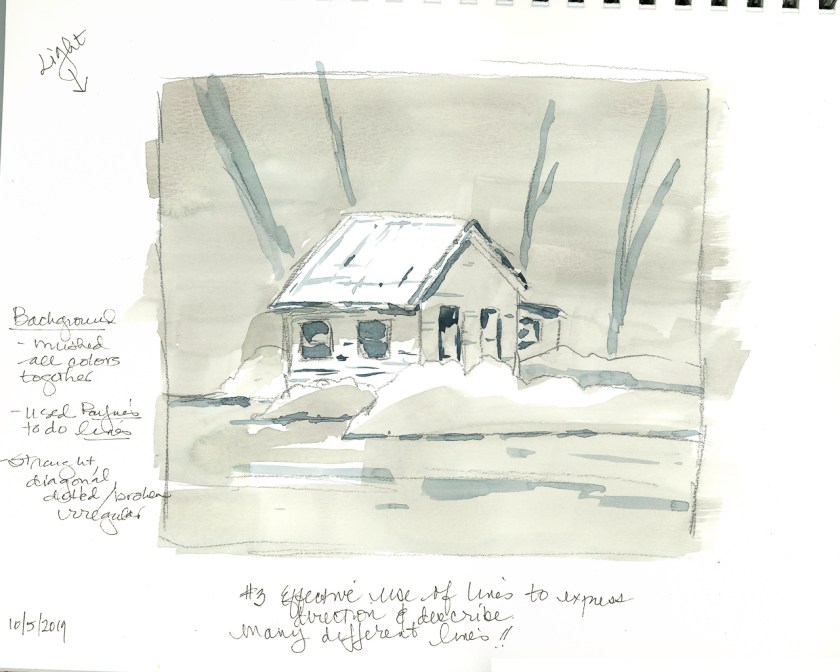 Light
Background
- mushed
all colors
together
- used Payne's
to do lines
Straight,
diagonal
dotted/broken
irregular
#3 Effective use of lines to express
direction & describe.
Many different lines!!
10/5/2019